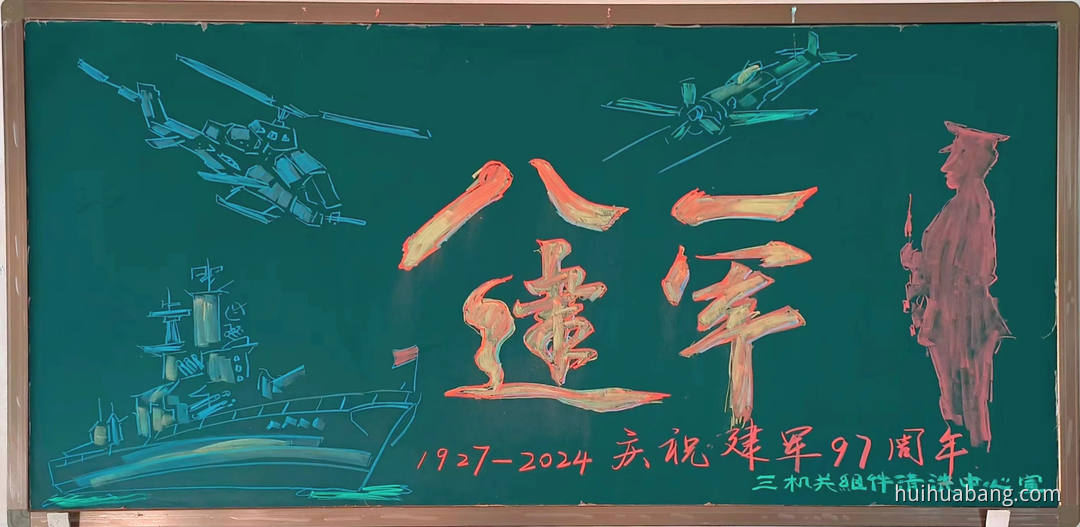 八一
建军
1927-2024 庆祝建军97周年
三机关组件清洗中心宣
huihuabang.com